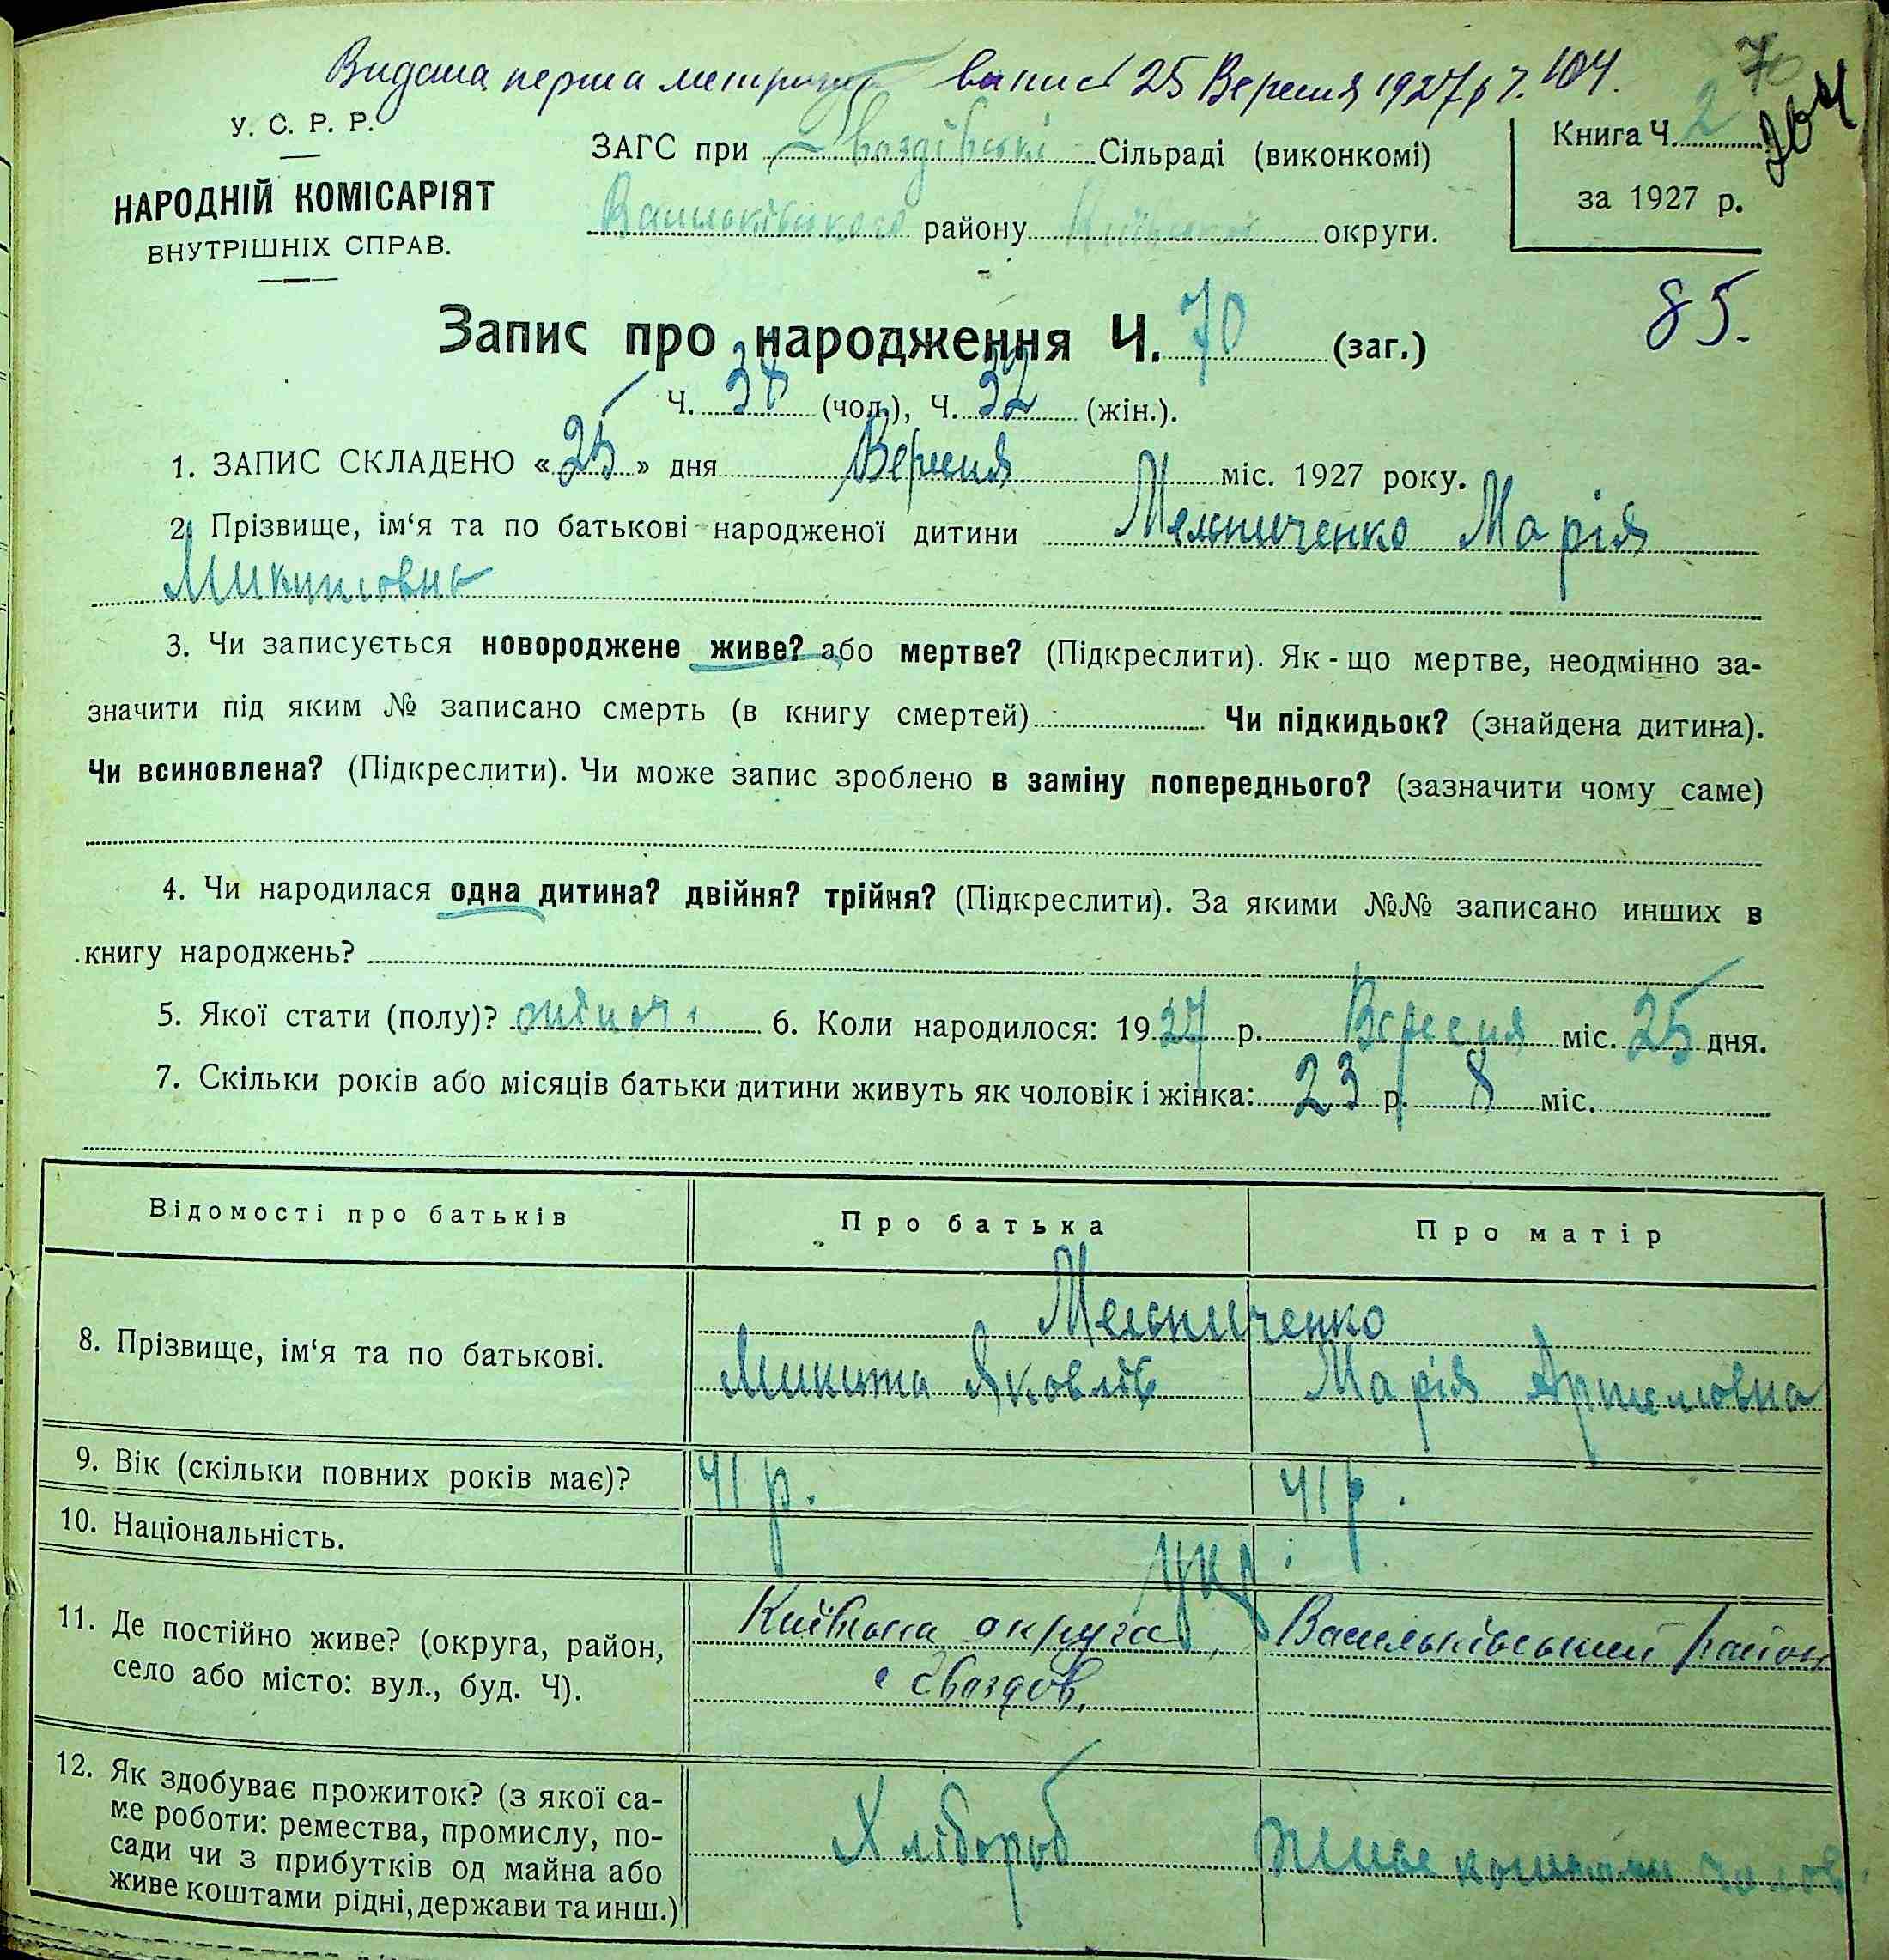 Видана перша метри вапис 25 Вересня 1927 р Ч. 104.
70
У. С. Р. Р.
НАРОДНІЙ КОМІСАРІЯТ
ВНУТРІШНІХ СПРАВ.
ЗАГС при Гвоздівські Сільраді (виконкомі)
Васильківського району Київської округи.
Книга Ч. 2
за 1927 р.
85.
Запис про народження Ч. 70 (заг.)
Ч. 38 (чол.), Ч. 32 (жін.).
1. ЗАПИС СКЛАДЕНО « 25 » дня Вересня міс. 1927 року.
2. Прізвище, ім‘я та по батькові народженої дитини Мельниченко Марія
Микитовна
3. Чи записується новороджене живе? або мертве? (Підкреслити). Як - що мертве, неодмінно за-
значити під яким № записано смерть (в книгу смертей) Чи підкидьок? (знайдена дитина).
Чи всиновлена? (Підкреслити). Чи може запис зроблено в заміну попереднього? (зазначити чому саме)
4. Чи народилася одна дитина? двійня? трійня? (Підкреслити). За якими №№ записано инших в
книгу народжень?
5. Якої стати (полу)? жіноч. 6. Коли народилося: 1927 р. Вересня міс. 25 дня.
7. Скільки років або місяців батьки дитини живуть як чоловік і жінка: 23 р. 8 міс.
Відомості про батьків Про батька Про матір
8. Прізвище, ім‘я та по батькові. Мельниченко
Микита Яковлів Марія Артемовна
9. Вік (скільки повних років має)? 41 р. 41 р.
10. Національність. укр.
11. Де постійно живе? (округа, район, Київська округа, Васильківський район
село або місто: вул., буд. Ч). с Гвоздов,
12. Як здобуває прожиток? (з якої са-
ме роботи: ремества, промислу, по-
сади чи з прибутків од майна або Хлібороб Живе коштами чолов.
живе коштами рідні, держави та инш.)